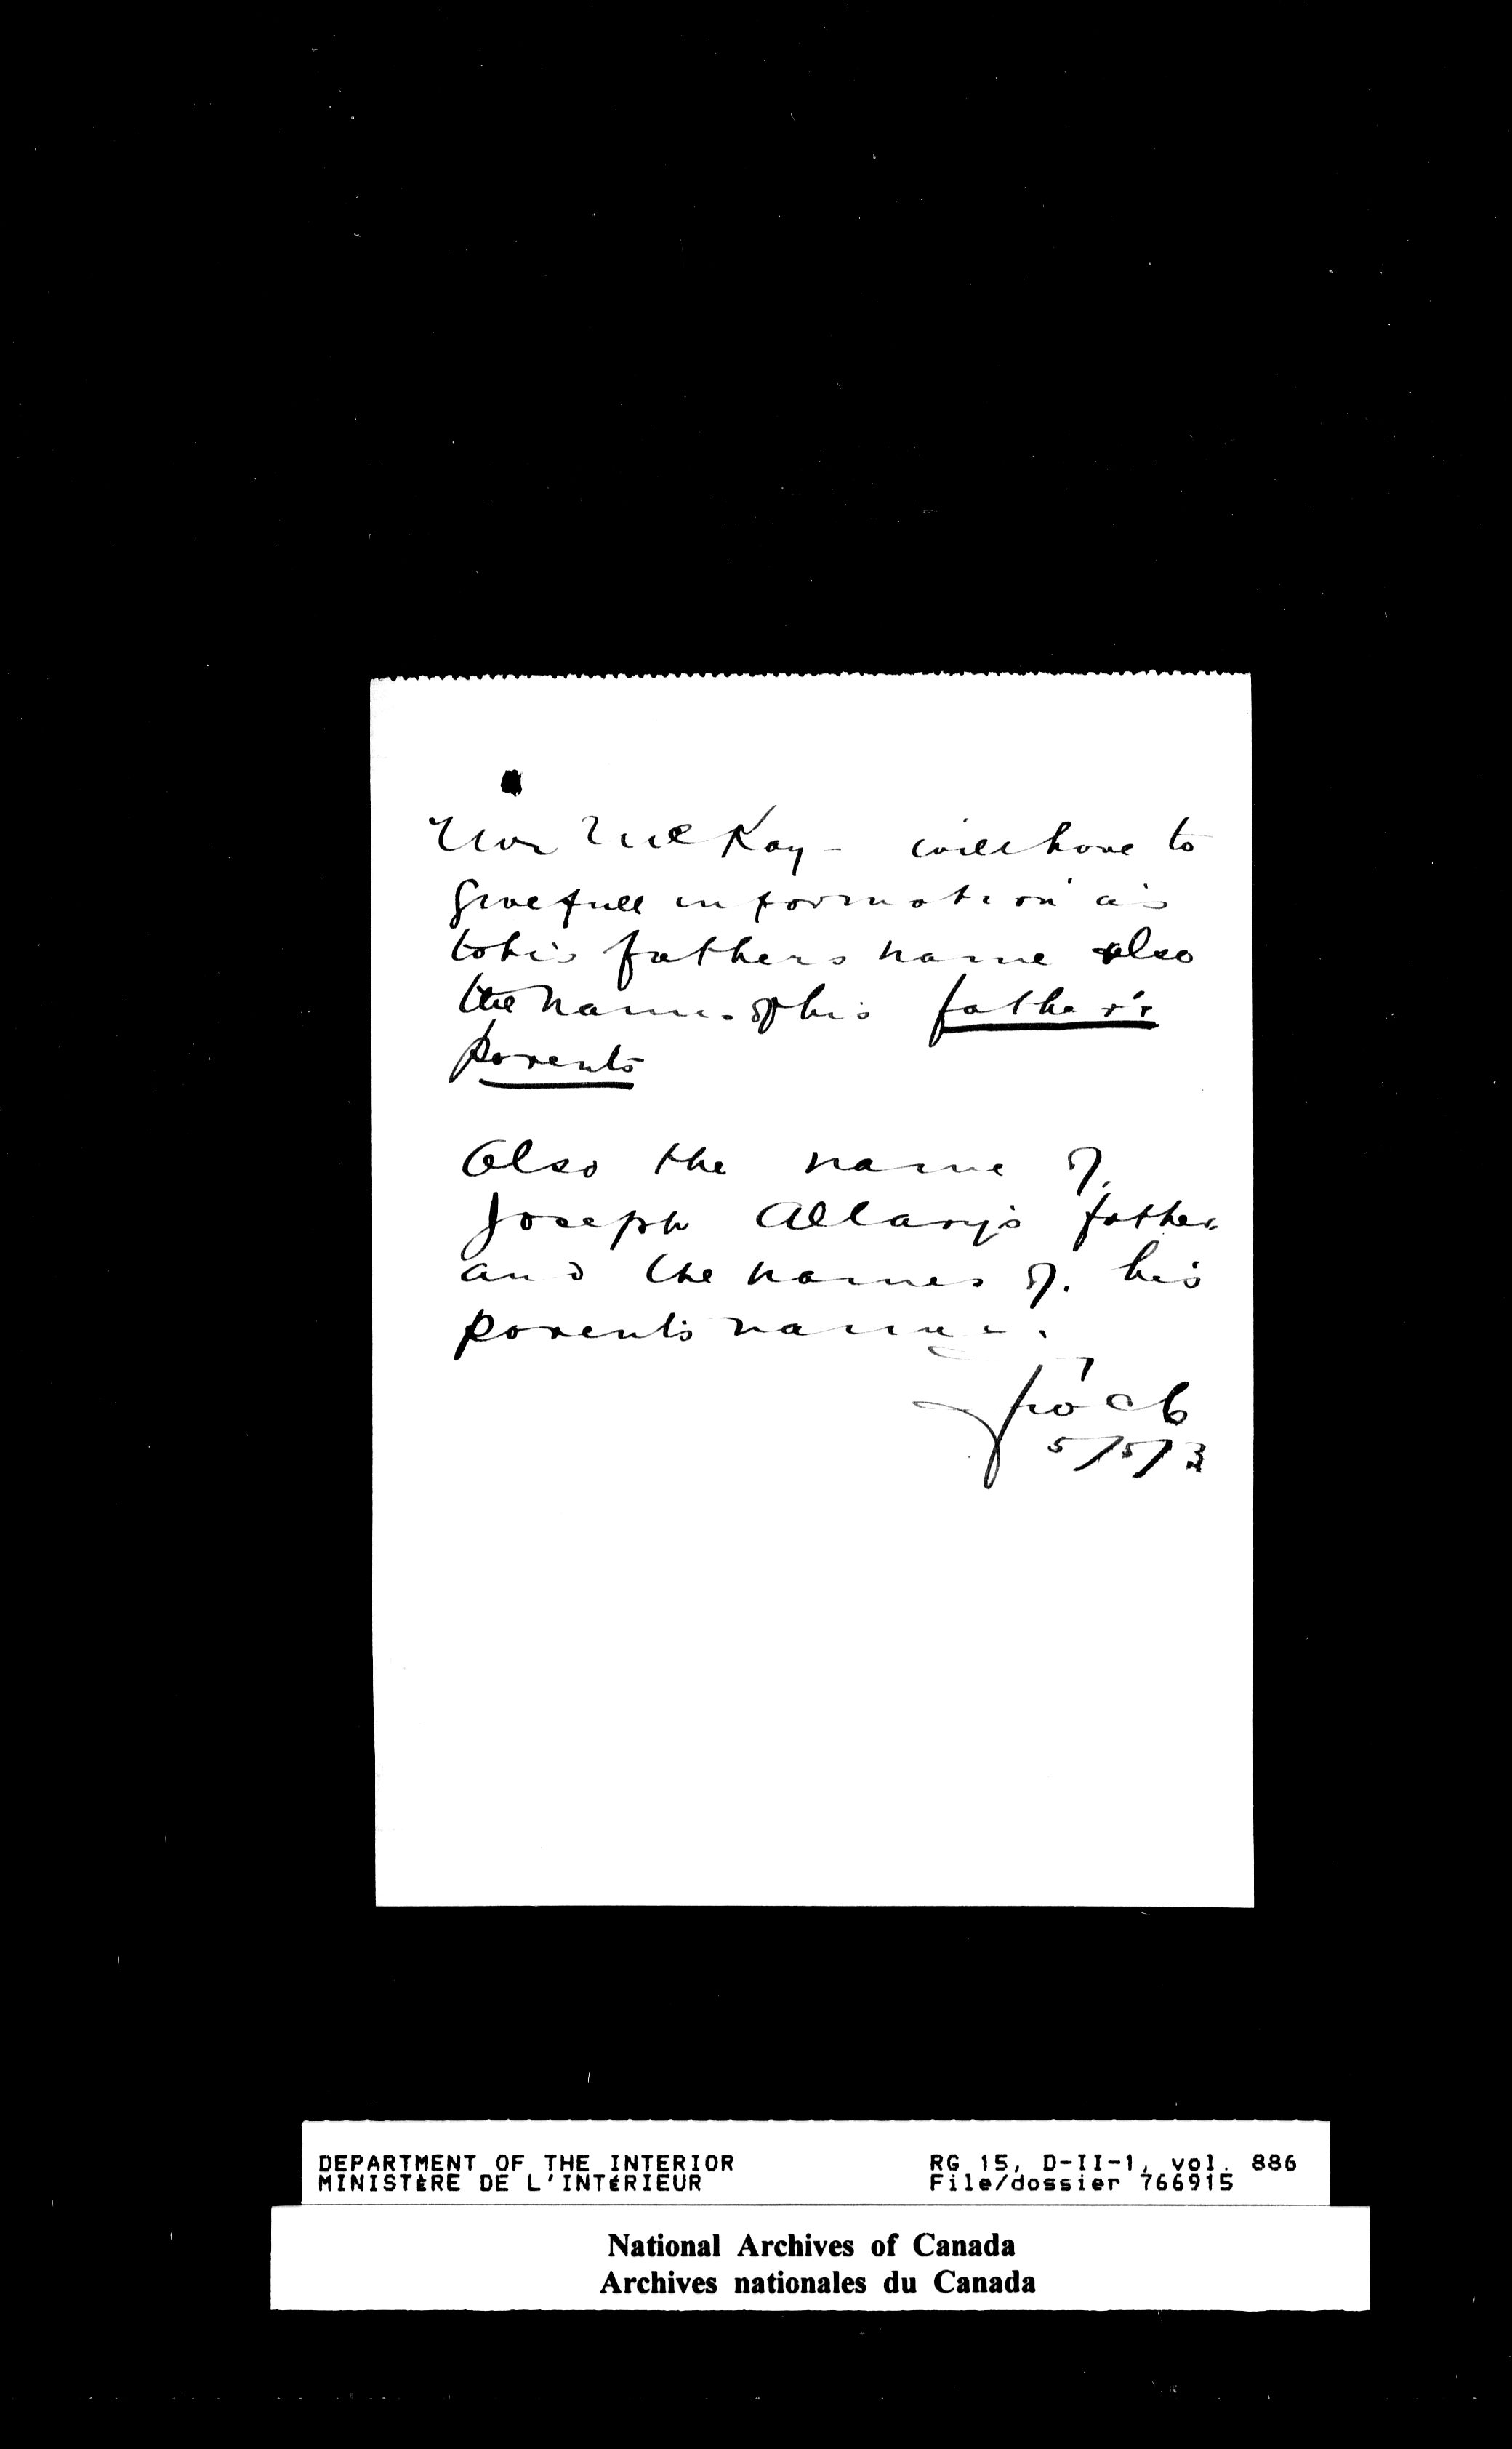 McKay - will have to
give full information as
to his fathers name also
the name of his father's
parents
Also the name of
Joseph Allary's father
and the names of his
parents name.
5/5/3
DEPARTMENT OF THE INTERIOR RG 15, D-II-1, vol. 886
MINISTÈRE DE L'INTÉRIEUR File/dossier 766915
National Archives of Canada
Archives nationales du Canada